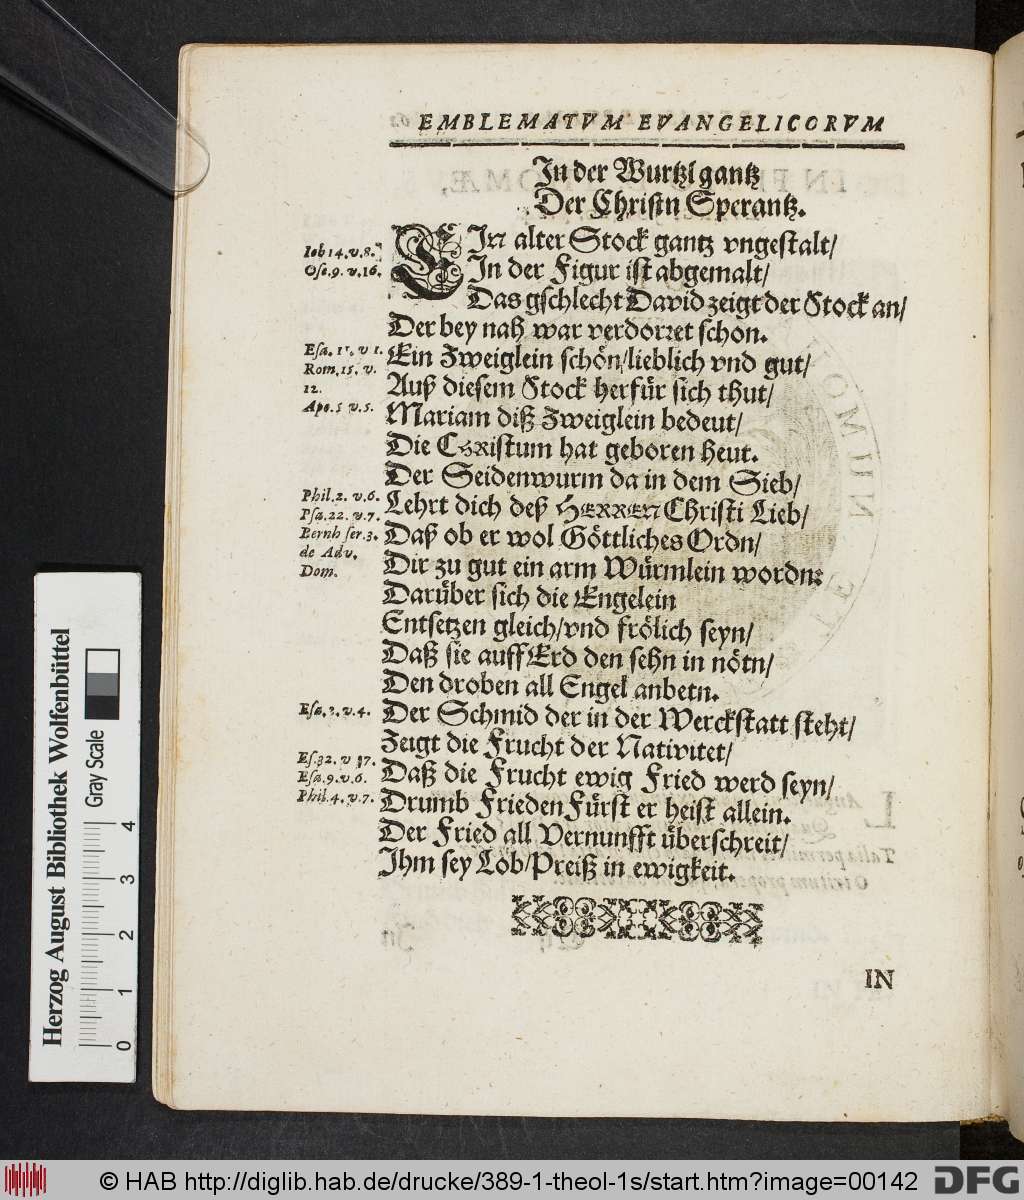 EMBLEMATVM EVANGELICORVM
In der Wurtzl gantz
Der Christn Sperantz.
EIn alter Stock gantz vngestalt/
In der Figur ist abgemalt/
Das gschlecht David zeigt der Stock an/
Der bey nah war verdorret schon.
Ein Zweiglein schön/lieblich vnd gut/
Auß diesem Stock herfür sich thut/
Mariam diß Zweiglein bedeut/
Die CHRistum hat geboren heut.
Der Seidenwurm da in dem Sieb/
Lehrt dich deß HERREN Christi Lieb/
Daß ob er wol Göttliches Ordn/
Dir zu gut ein arm Würmlein wordn:
Darüber sich die Engelein
Entsetzen gleich/vnd frölich seyn/
Daß sie auff Erd den sehn in nötn/
Den droben all Engel anbetn.
Der Schmid der in der Werckstatt steht/
Zeigt die Frucht der Nativitet/
Daß die Frucht ewig Fried werd seyn/
Drumb Frieden Fürst er heist allein.
Der Fried all Vernunfft überschreit/
Ihm sey Lob/Preiß in ewigkeit.
Iob 14. v. 8.
Ose. 9. v. 16.
Esa. 11. v 1.
Rom. 15. v.
12.
Apo. 5 v. 5.
Phil. 2. v. 6.
Psa. 22. v. 7.
Bernh ser. 3.
de Adv.
Dom.
Esa. 2. v. 4.
Es. 32. v 17.
Esa. 9. v. 6.
Phil. 4. v. 7.
IN
Herzog August Bibliothek Wolfenbüttel
Gray Scale
0 1 2 3 4
© HAB http://diglib.hab.de/drucke/389-1-theol-1s/start.htm?image=00142
DFG